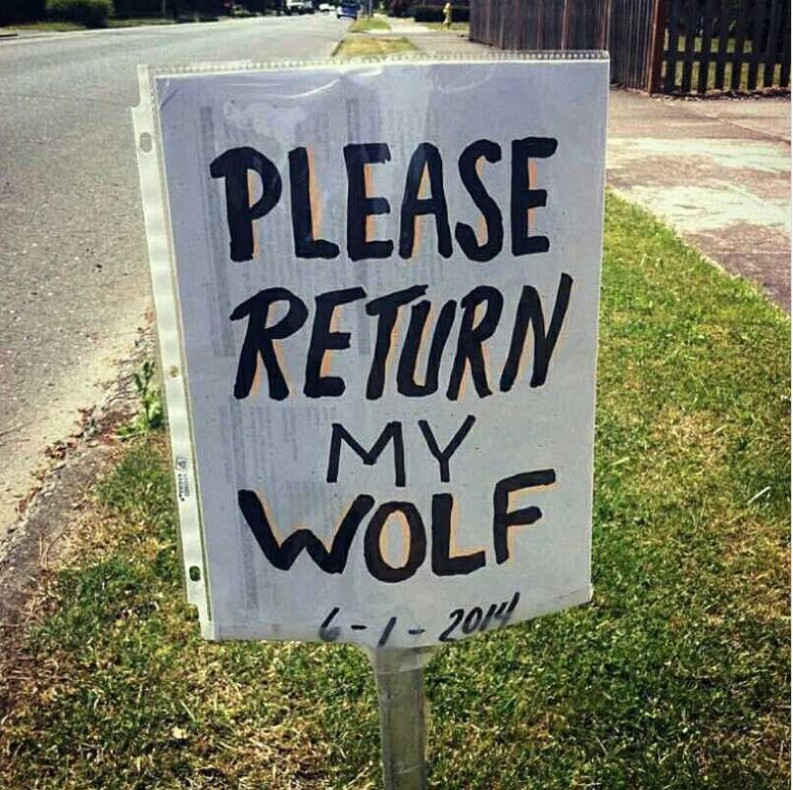 PLEASE
RETURN
MY
WOLF
6-1-2014